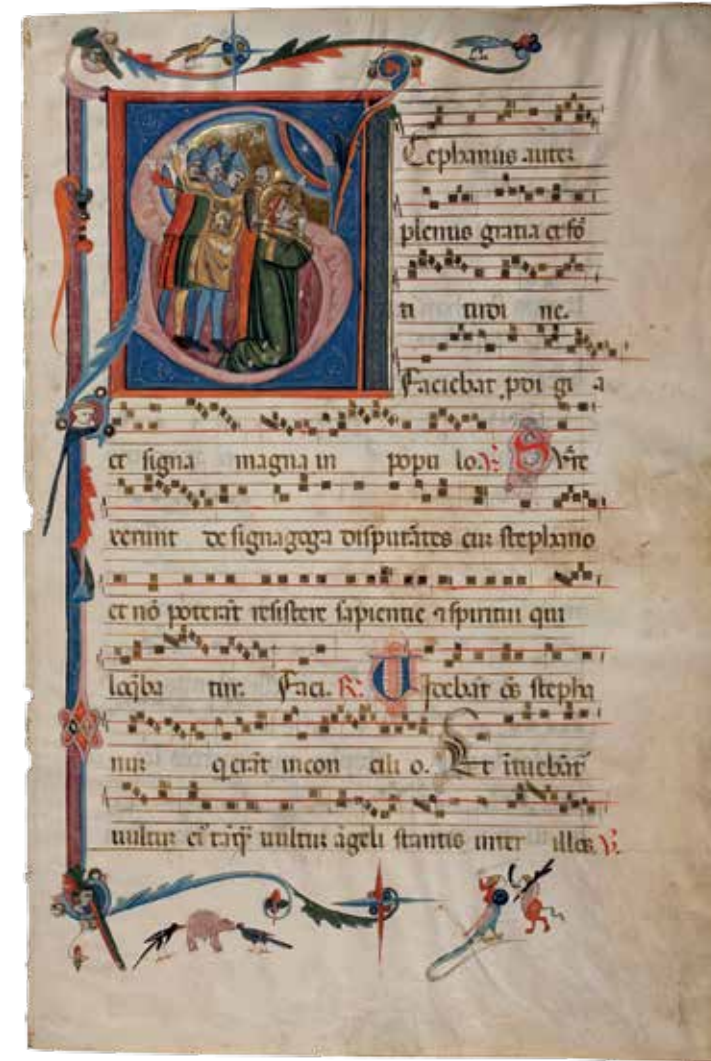 STephanus autez
plenus gratia et fō
ti tudi ne.
Faciebat pdi gi a
et signa magna in popu lo. ℣. Sur̄re
xerunt de signagoga disputātes cuz stephano
et nō poterāt resistere sapientie ⁊ spiritui qui
loq̄ba tur. Faci. R̄. Uidebāt ōs stepha
nuz q erāt in con cili o. Et ītuebāt
uultuz eiꝰ tāqz uultuz āgeli stantis inter illos. ℣.